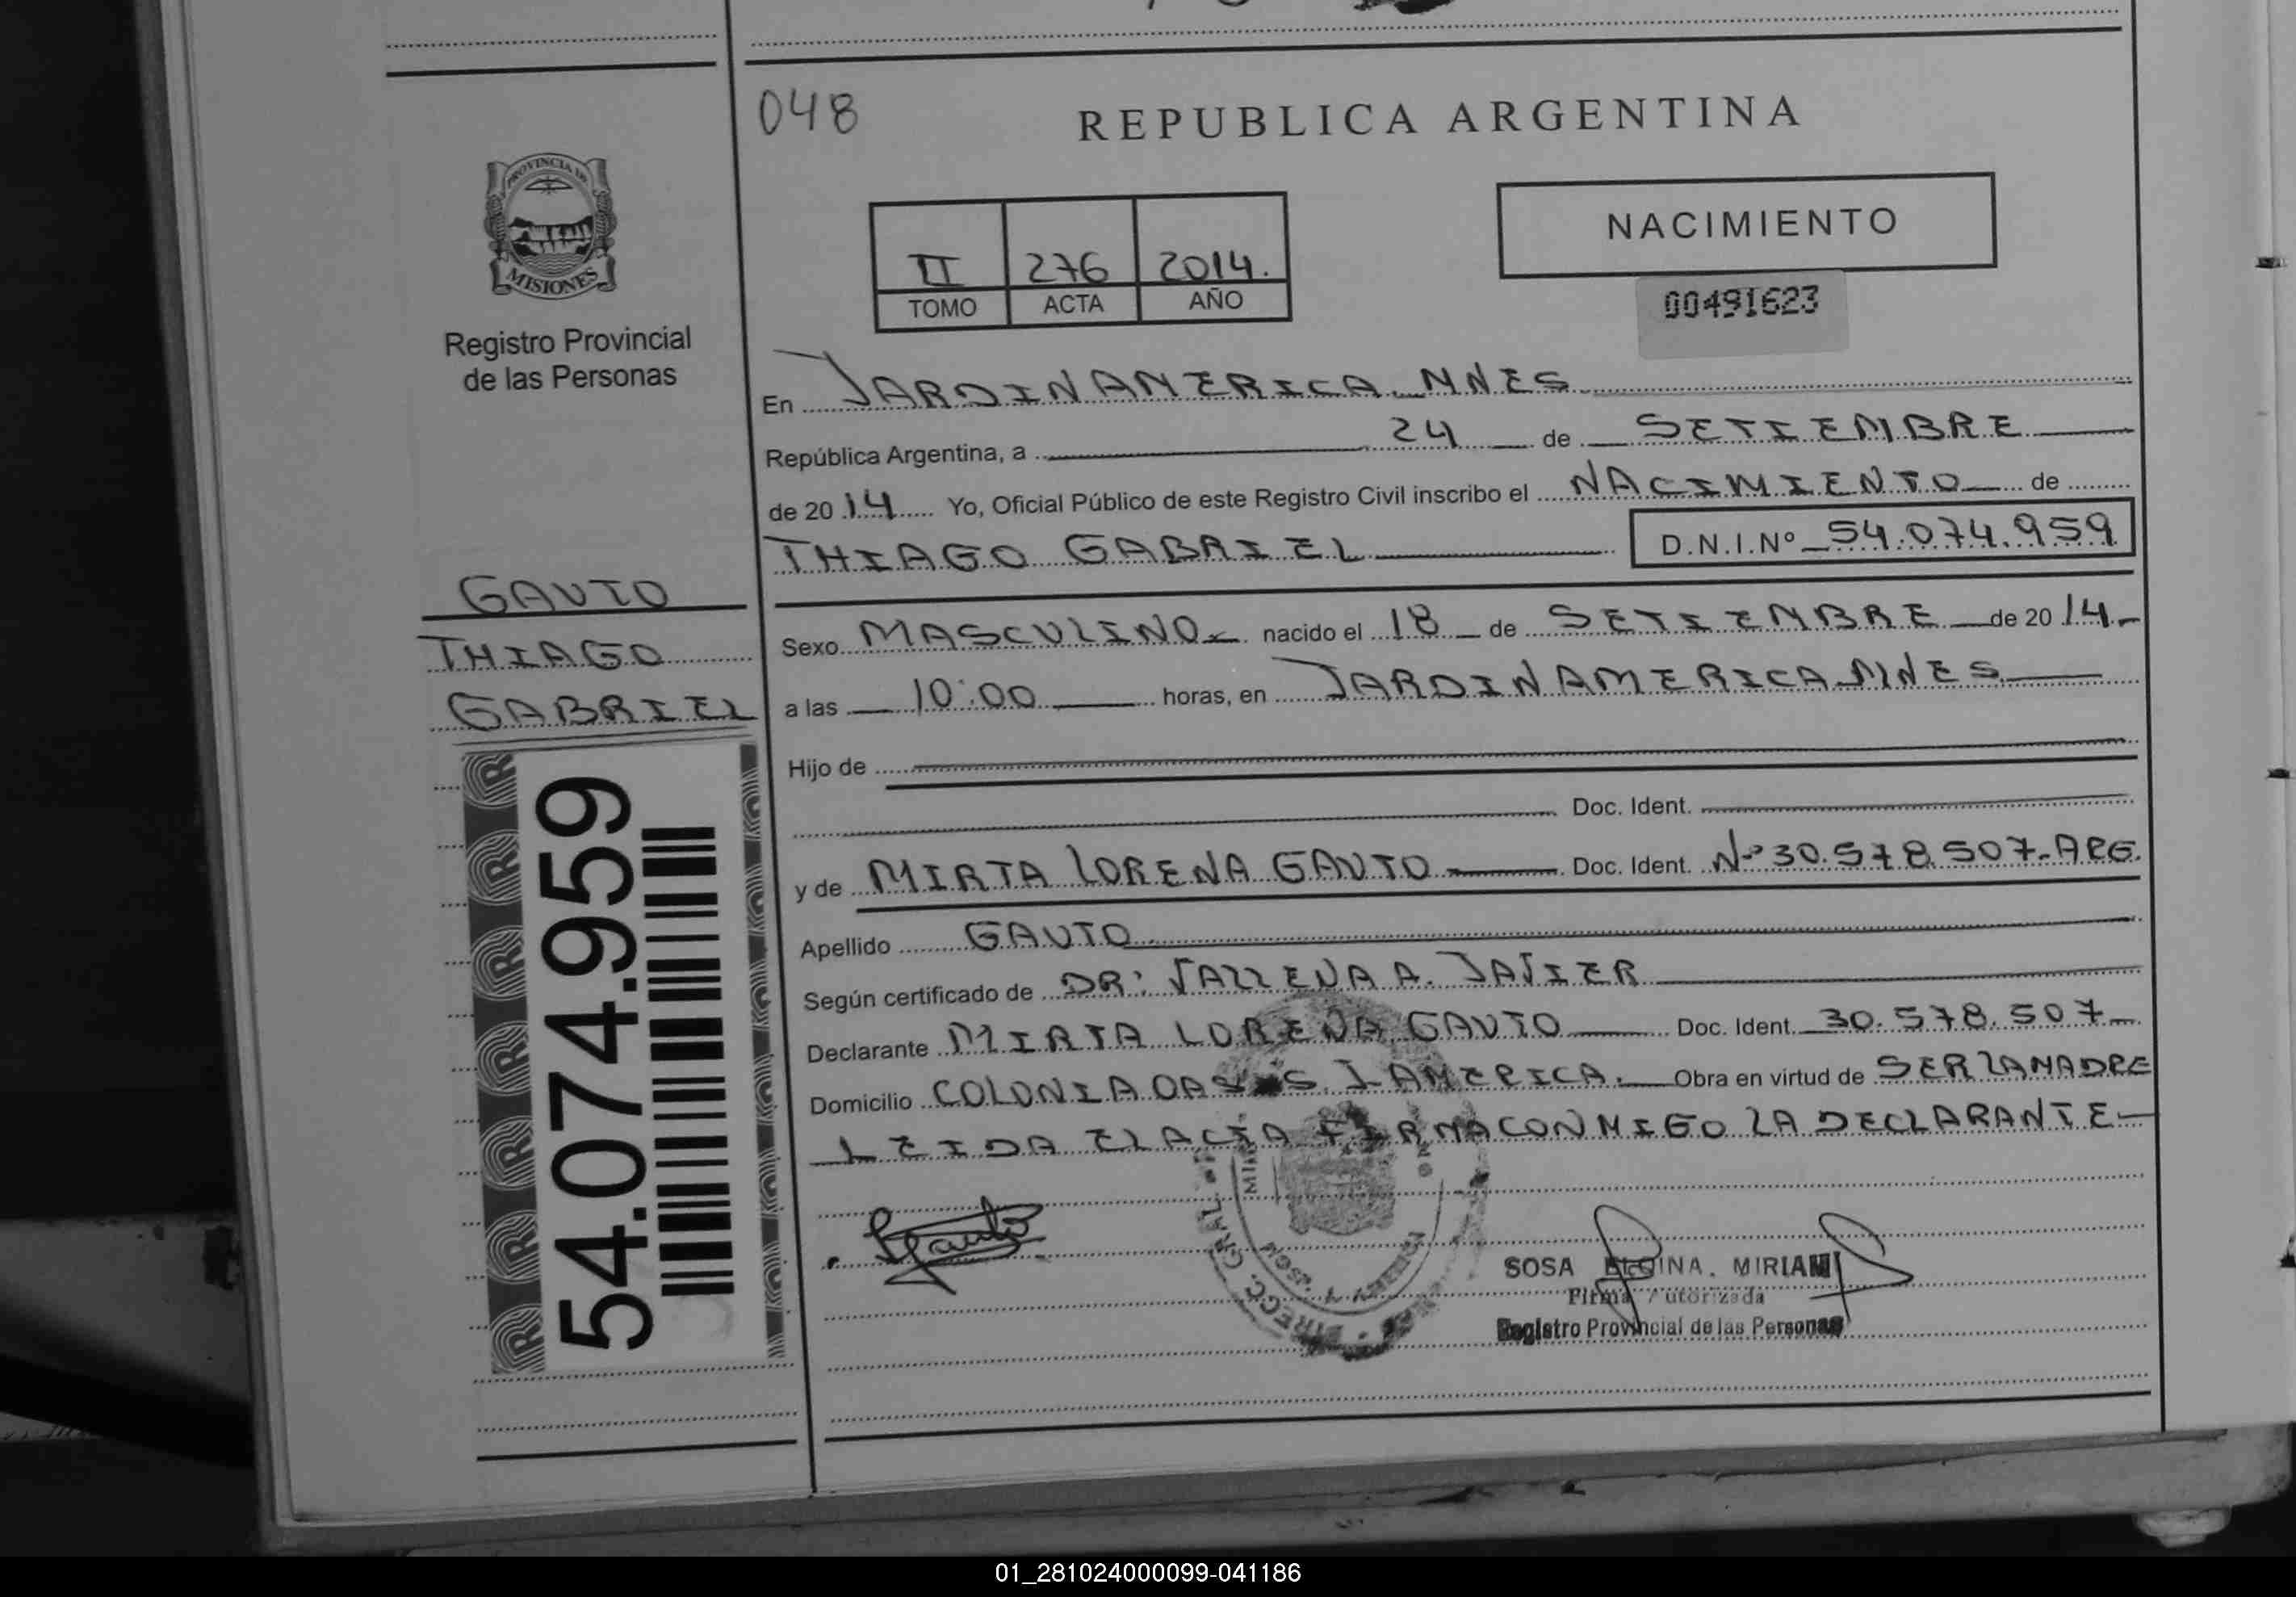 048
REPUBLICA ARGENTINA
PROVINCIA DE
MISIONES
Registro Provincial
de las Personas
II 276 2014.
TOMO ACTA AÑO
NACIMIENTO
00491623
En JARDIN AMERICA MNES
República Argentina, a 24 de SETIEMBRE
de 2014 Yo, Oficial Público de este Registro Civil inscribo el NACIMIENTO de
THIAGO GABRIEL D.N.I.Nº 54.074.959
GAUTO
THIAGO
GABRIEL
54.074.959
Sexo MASCULINO nacido el 18 de SETIEMBRE de 2014.-
a las 10:00 horas, en JARDIN AMERICA MNES
Hijo de
Doc. Ident.
y de MIRTA LORENA GAUTO Doc. Ident. Nº 30.578.507-ARG.
Apellido GAUTO
Según certificado de DR: A. JAVIER
Declarante MIRTA LORENA GAUTO Doc. Ident. 30.578.507-
Domicilio COLONIA OASIS J. AMERICA. Obra en virtud de SER LA MADRE
LEIDA EL ACTA FIRMA CONMIGO LA DECLARANTE
Gauto
DIRECC. GRAL.
SOSA MIRIAM
Firma Autorizada
Registro Provincial de las Personas
01_281024000099-041186